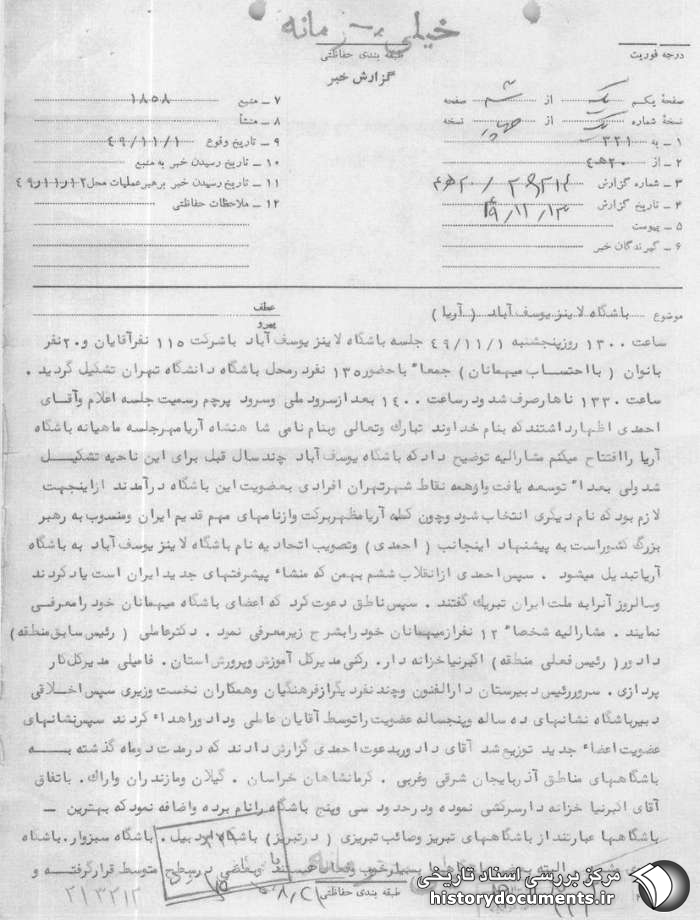 خیلی محرمانه
طبقه بندی حفاظتی
درجه فوریت
گزارش خبر
صفحهٔ یکم یک از شش صفحه
نسخهٔ شماره یک از چهار نسخه
۱ ـ به ۳۲۱
۲ ـ از ۲۰ﻫ۴
۳ ـ شماره گزارش
۴ ـ تاریخ گزارش ۴۹/۱۱/۱۳
۵ ـ پیوست
۶ ـ گیرندگان خبر
۷ ـ منبع ۱۸۵۸
۸ ـ منشأ
۹ ـ تاریخ وقوع ۴۹/۱۱/۱
۱۰ ـ تاریخ رسیدن خبر به منبع
۱۱ ـ تاریخ رسیدن خبر برهبر عملیات محل ۴۹/۱۱/۱۲
۱۲ ـ ملاحظات حفاظتی
موضوع باشگاه لاینز یوسف آباد (آریا)
عطف
پیرو
ساعت ۱۳۰۰ روز پنجشنبه ۴۹/۱۱/۱ جلسه باشگاه لاینز یوسف آباد باشرکت ۱۱۵ نفر آقایان و ۲۰ نفر
بانوان (با احتساب میهمانان) جمعا" با حضور ۱۳۵ نفر در محل باشگاه دانشگاه تهران تشکیل گردید .
ساعت ۱۳۳۰ ناهار صرف شد و در ساعت ۱۴۰۰ بعد از سرود ملی وسرود پرچم رسمیت جلسه اعلام وآقای
احمدی اظهار داشتند که بنام خداوند تبارک وتعالی وبنام نامی شاهنشاه آریامهر جلسه ماهیانه باشگاه
آریا را افتتاح میکنم مشارالیه توضیح داد که باشگاه یوسف آباد چند سال قبل برای این ناحیه تشکیل
شد ولی بعدا" توسعه یافت واز همه نقاط شهر تهران افرادی بعضویت این باشگاه در آمدند از اینجهت
لازم بود که نام دیگری انتخاب شود وچون کلمه آریا مظهر برکت واز نامهای مهم قدیم ایران ومنسوب به رهبر
بزرگ کشور است به پیشنهاد اینجانب (احمدی) وتصویب اتحادیه نام باشگاه لاینز یوسف آباد به باشگاه
آریا تبدیل میشود . سپس احمدی از انقلاب ششم بهمن که منشاء پیشرفتهای جدید ایران است یاد کردند
وسالروز آنرا به ملت ایران تبریک گفتند . سپس ناطق دعوت کرد که اعضای باشگاه میهمانان خود را معرفی
نمایند . مشارالیه شخصا" ۱۲ نفر از میهمانان خود را بشرح زیر معرفی نمود . دکتر عاملی (رئیس سابق منطقه)
داور (رئیس فعلی منطقه) اکبرنیا خزانه دار . رکنی مدیر کل آموزش وپرورش استان . فامیلی مدیر کل کار
پردازی . سرور رئیس دبیرستان دارالفنون وچند نفر دیگر از فرهنگیان وهمکاران نخست وزیری سپس اخلاقی
دبیر باشگاه نشانهای ده ساله وپنجساله عضویت را توسط آقایان عاملی وداور اهداء کردند سپس نشانهای
عضویت اعضاء جدید توزیع شد آقای داور بدعوت احمدی گزارش دادند که در مدت دو ماه گذشته به
باشگاههای مناطق آذربایجان شرقی وغربی . کرمانشاهان خراسان . گیلان ومازندران واراک . باتفاق
آقای اکبرنیا خزانه دار سرکشی نموده و در حدود سی وپنج باشگاه را نام برده واضافه نمود که بهترین ـ
باشگاهها عبارتند از باشگاههای تبریز وصائب تبریزی (در تبریز) باشگاه اردبیل . باشگاه سبزوار . باشگاه
البته باشگاهها بسیار خوب وفعال هستند وبعضی در سطح متوسط قرار گرفته و
طبقه بندی حفاظتی
۲۱۳۲۱۲
مرکز بررسی اسناد تاریخی
historydocuments.ir